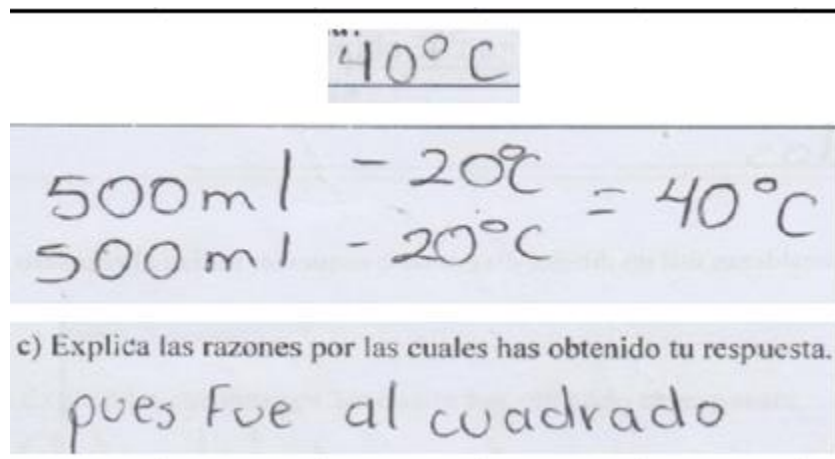 40° C
500 ml - 20°C
500 ml - 20°C = 40°C
c) Explica las razones por las cuales has obtenido tu respuesta.
pues Fue al cuadrado